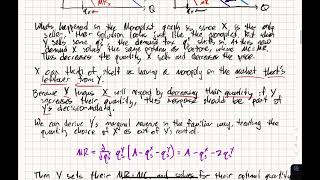 MR
Q
Q
What's happened in the Monopolist graph is, since X is the only
seller, the solution looks just like the monopolist, but when
Y sells some of the demand too, it shifts in.
demand X solves the same problem as before, where MC=MR.
This decreases the quantity X sells and decreases the price.
X can think of itself as having a monopoly in the market that's
leftover from Y.
Because Y knows X will respond by decreasing their quantity if Y
increases their quantity, this response should be part of
Y's decision-making.
We can derive Y's marginal revenue in the familiar way, treating the
quantity choice of X as out of Y's control.
MR = ∂/∂q_s^Y q_s^Y (A - q_s^X - q_s^Y) = A - q_s^X - 2q_s^Y
Then Y sets their MR=MC and solves for their optimal quantity